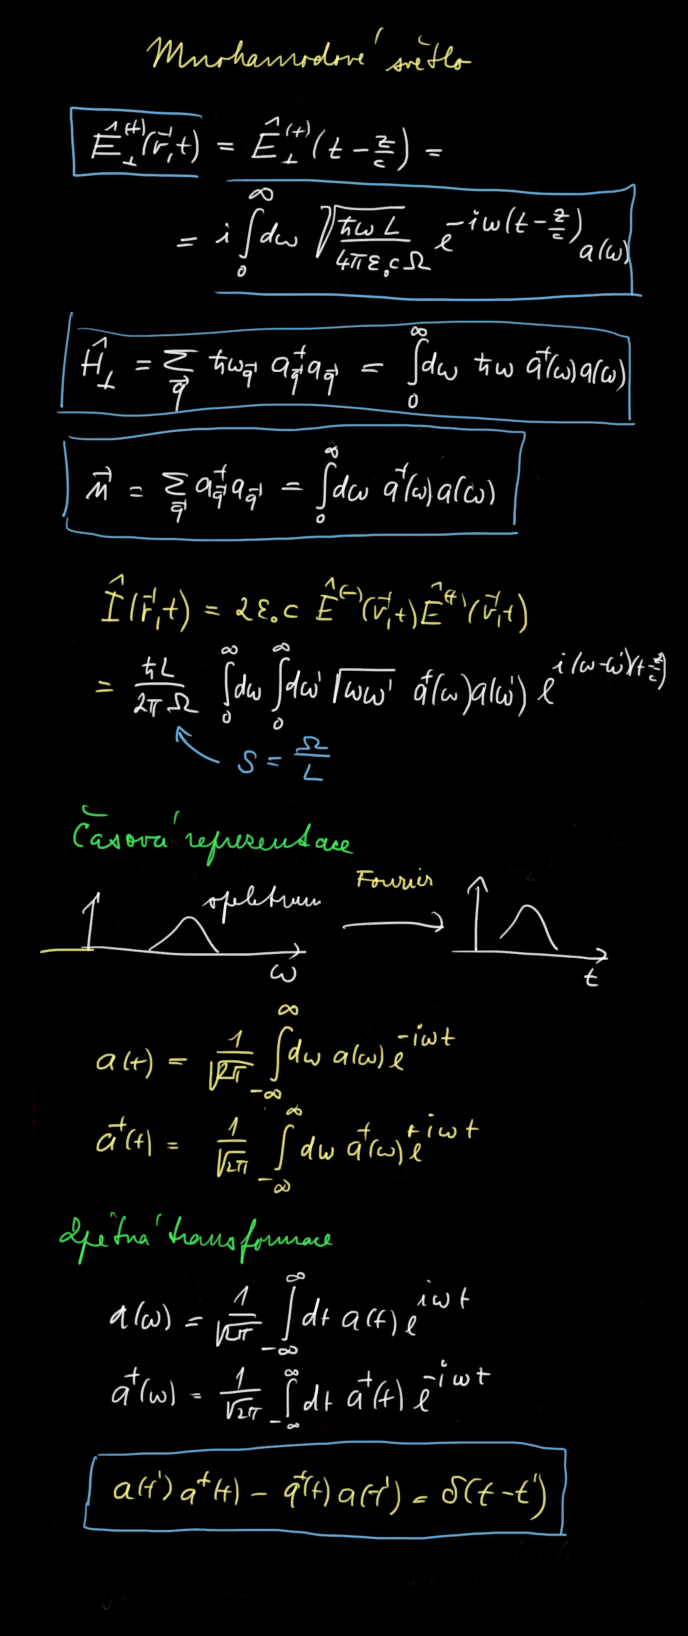 Mnohamodové světlo
Ê⊥^(+)(r⃗,t) = Ê⊥^(+)(t − z/c) =
= i ∫₀^∞ dω √(ħω L / 4πε₀cΩ) e^{−iω(t − z/c)} a(ω)
Ĥ⊥ = Σ_q⃗ ħω_q⃗ a†_q⃗ a_q⃗ = ∫₀^∞ dω ħω a†(ω)a(ω)
n⃗ = Σ_q⃗ a†_q⃗ a_q⃗ = ∫₀^∞ dω a†(ω)a(ω)
Î(r⃗,t) = 2ε₀c Ê^(−)(r⃗,t)Ê^(+)(r⃗,t)
= ħL / 2πΩ ∫₀^∞ dω ∫₀^∞ dω' √(ωω') a†(ω)a(ω') e^{i(ω−ω')(t−z/c)}
S = Ω/L
Časová representace
spektrum Fourier
ω t
a(t) = 1/√2π ∫_{−∞}^{∞} dω a(ω) e^{−iωt}
a†(t) = 1/√2π ∫_{−∞}^{∞} dω a†(ω) e^{+iωt}
Zpětná transformace
a(ω) = 1/√2π ∫_{−∞}^{∞} dt a(t) e^{iωt}
a†(ω) = 1/√2π ∫_{−∞}^{∞} dt a†(t) e^{−iωt}
a(t') a†(t) − a†(t) a(t') = δ(t−t')